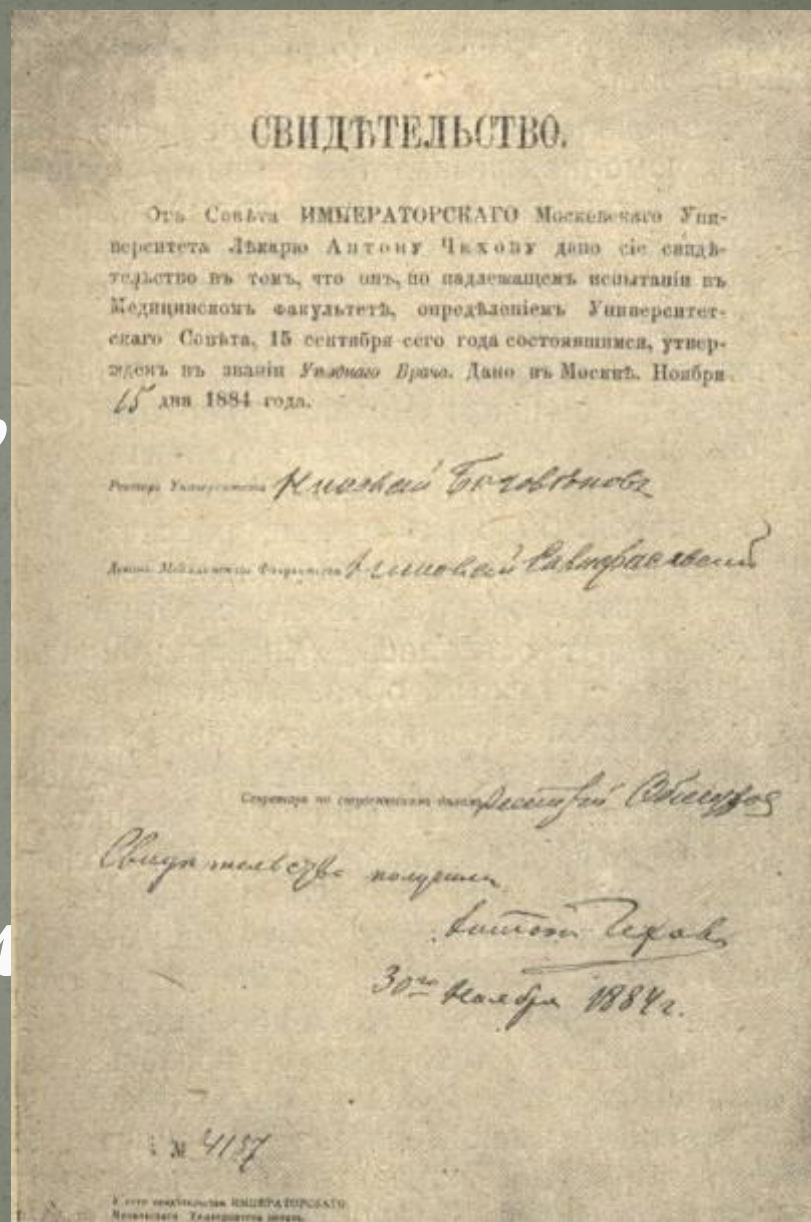 СВИДѢТЕЛЬСТВО.
Отъ Совѣта ИМПЕРАТОРСКАГО Московскаго Уни-
верситета Лѣкарю Антону Чехову дано сіе свидѣ-
тельство въ томъ, что онъ, по надлежащемъ испытаніи въ
Медицинскомъ факультетѣ, опредѣленіемъ Университет-
скаго Совѣта, 15 сентября сего года состоявшимся, утвер-
жденъ въ званіи Уѣзднаго Врача. Дано въ Москвѣ. Ноября
15 дня 1884 года.
Ректоръ Университета Николай Боголѣповъ
Деканъ Медицинскаго Факультета Николай
Секретарь по студенческимъ дѣламъ
Свидѣтельство получилъ
Антонъ Чеховъ
30го Ноября 1884 г.
№ 4137
ИМПЕРАТОРСКАГО
Московскаго Университета печать.